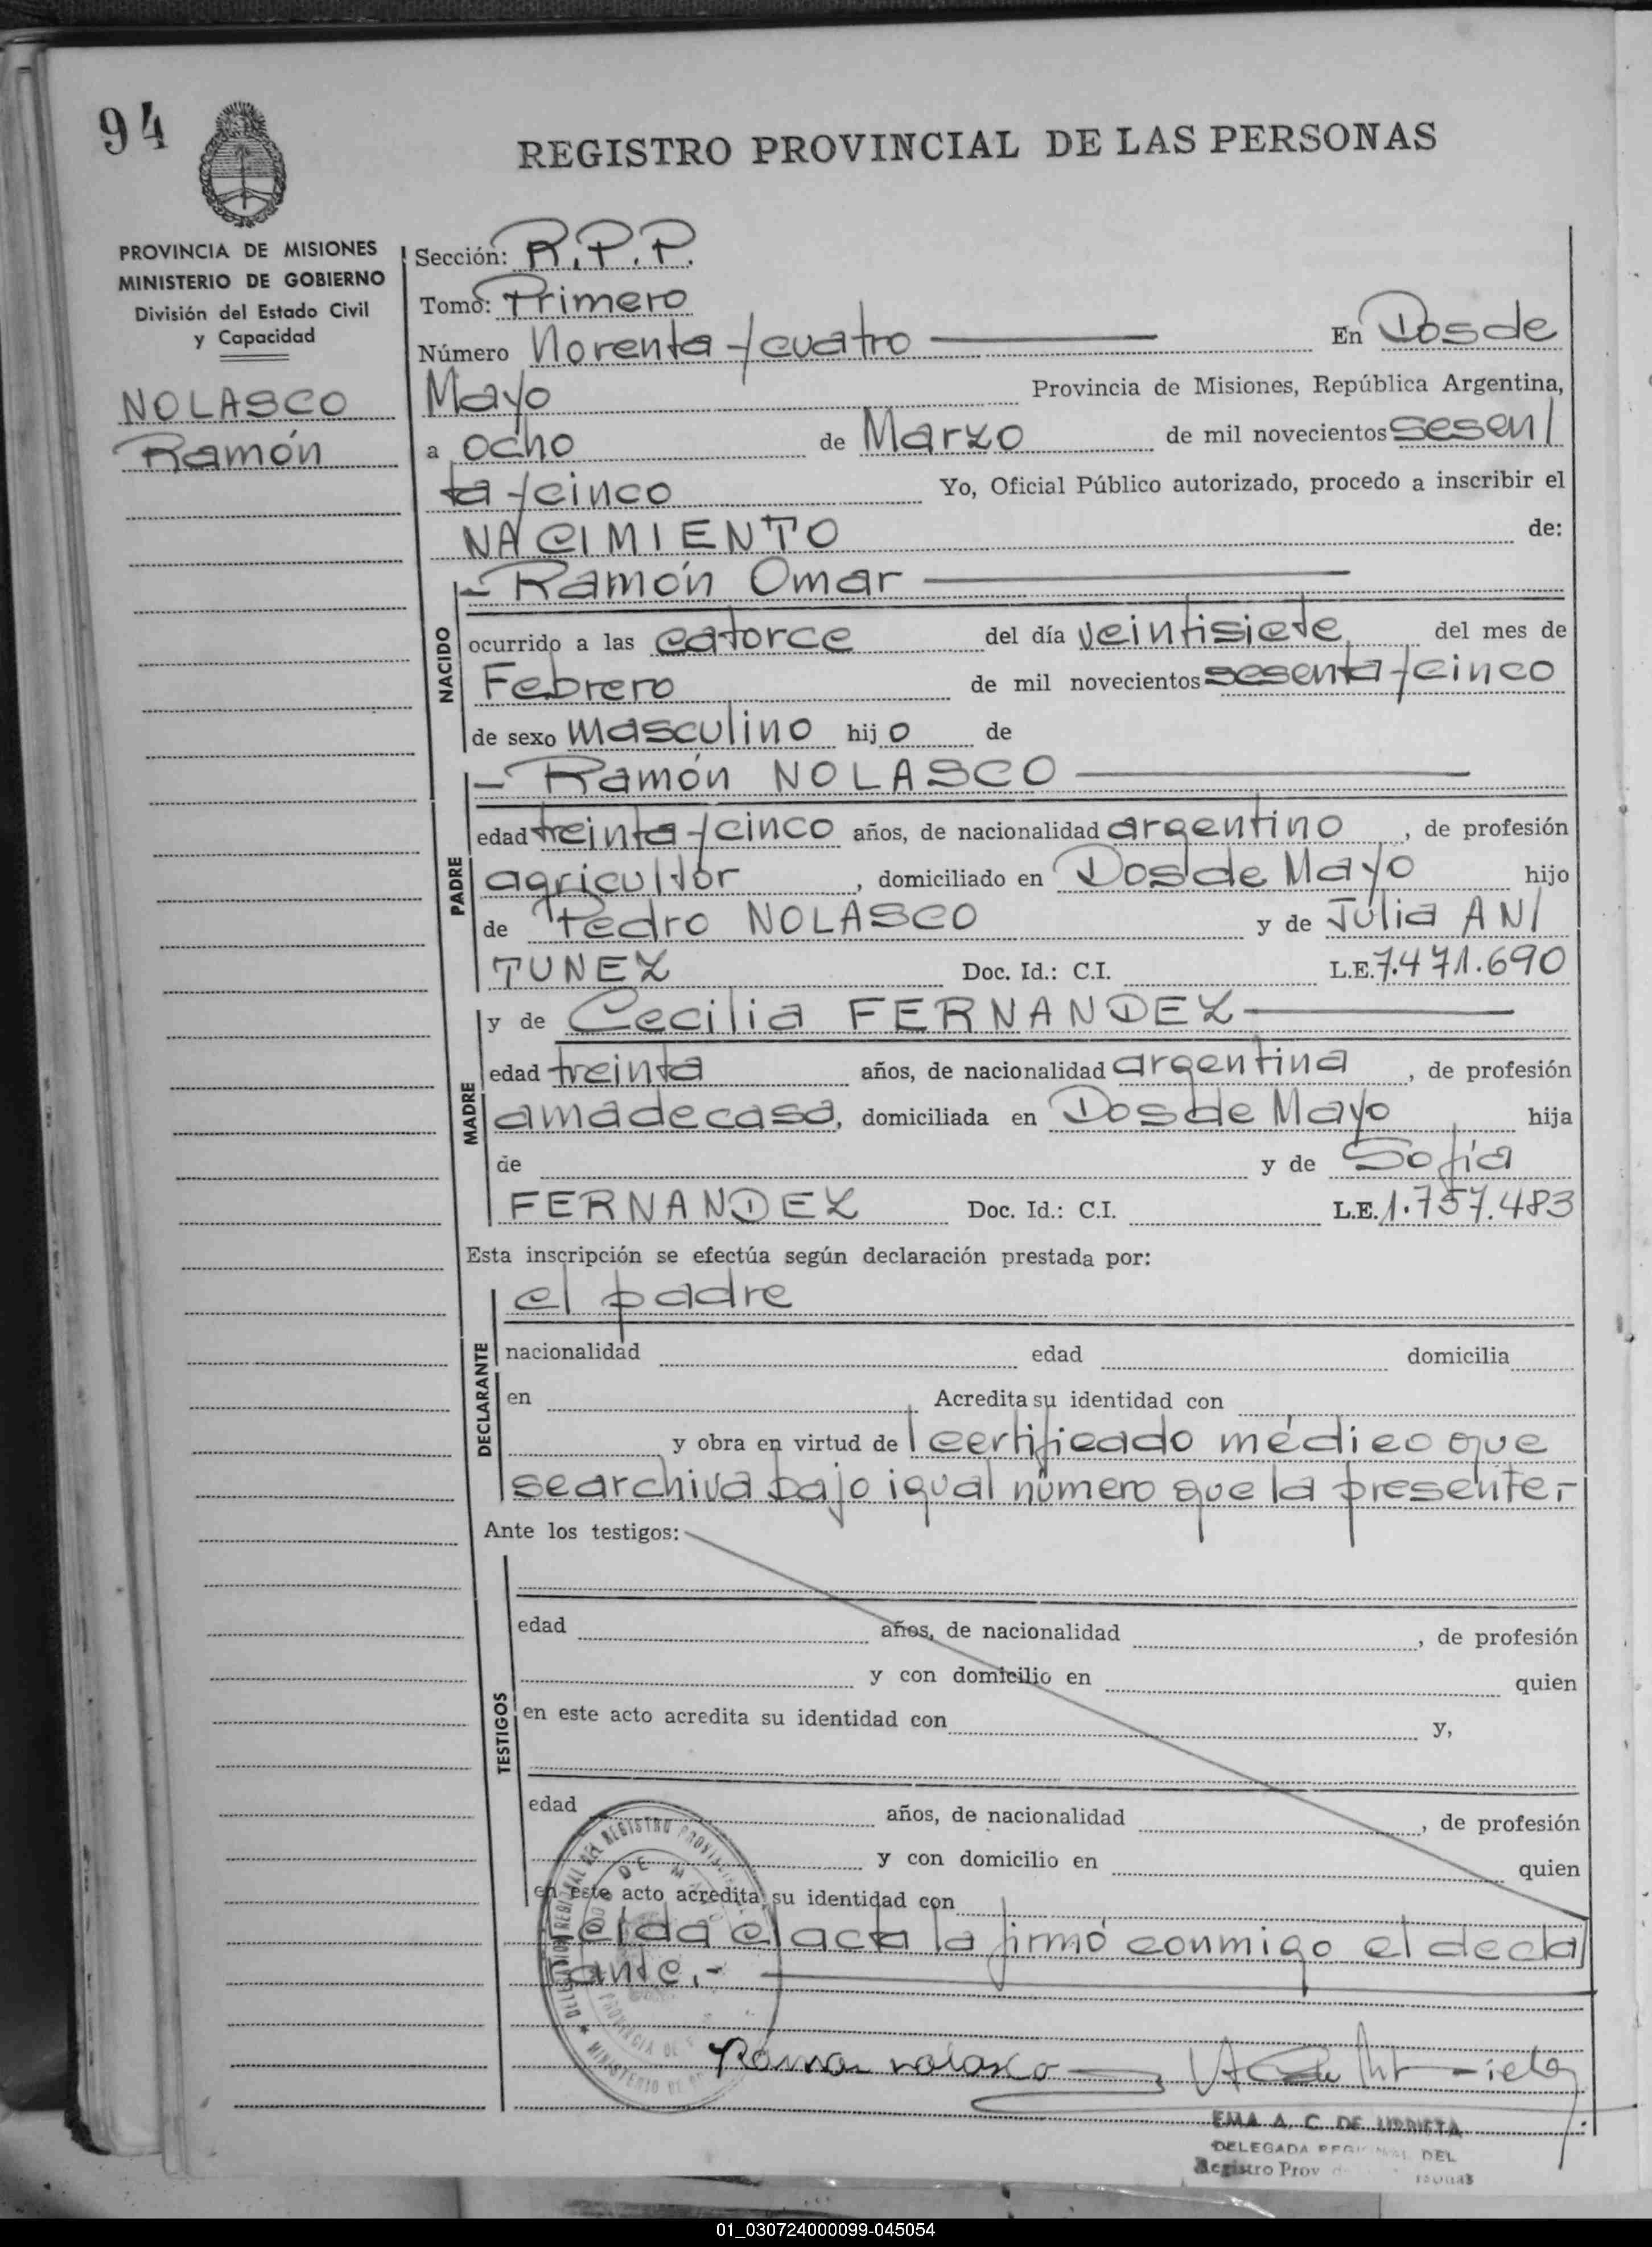 94
REGISTRO PROVINCIAL DE LAS PERSONAS
PROVINCIA DE MISIONES
MINISTERIO DE GOBIERNO
División del Estado Civil
y Capacidad
NOLASCO
Ramón
Sección: R.P.P.
Tomo: Primero
Número Noventa y cuatro En Dos de
Mayo Provincia de Misiones, República Argentina,
a ocho de Marzo de mil novecientos sesen/
ta y cinco Yo, Oficial Público autorizado, procedo a inscribir el
NACIMIENTO de:
NACIDO
- Ramón Omar
ocurrido a las catorce del día veintisiete del mes de
Febrero de mil novecientos sesenta y cinco
de sexo masculino hijo de
PADRE
- Ramón NOLASCO
edad treinta y cinco años, de nacionalidad argentino, de profesión
agricultor, domiciliado en Dos de Mayo hijo
de Pedro NOLASCO y de Julia AN/
TUNEZ Doc. Id.: C.I. L.E. 7.471.690
MADRE
y de Cecilia FERNANDEZ
edad treinta años, de nacionalidad argentina, de profesión
ama de casa, domiciliada en Dos de Mayo hija
de y de Sofía
FERNANDEZ Doc. Id.: C.I. L.E. 1.757.483
Esta inscripción se efectúa según declaración prestada por:
DECLARANTE
el padre
nacionalidad edad domicilia
en Acredita su identidad con
y obra en virtud del certificado médico que
se archiva bajo igual número que la presente.-
Ante los testigos:
TESTIGOS
edad años, de nacionalidad, de profesión
y con domicilio en quien
en este acto acredita su identidad con y,
edad años, de nacionalidad, de profesión
y con domicilio en quien
en este acto acredita su identidad con
Leída el acta la firmó conmigo el decla/
rante.-
DELEGACION REGIONAL DEL REGISTRO PROVINCIAL
DOS DE MAYO
PROVINCIA DE
MINISTERIO DE
Ramon nolasco
EMA A. C. DE URRIETA
DELEGADA REGIONAL DEL
Registro Prov
01_030724000099-045054